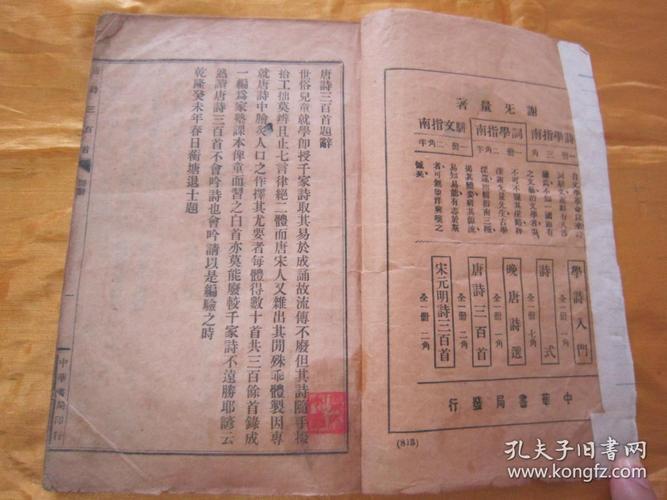 唐詩三百首題辭
世俗兒童就學卽授千家詩取其易於成誦故流傳不廢但其詩隨手掇
拾工拙莫辨且止七言律絕二體而唐宋人又雜出其間殊乖體製因專
就唐詩中膾炙人口之作擇其尤要者每體得數十首共三百餘首錄成
一編爲家塾課本俾童而習之白首亦莫能廢較千家詩不遠勝耶諺云
熟讀唐詩三百首不會吟詩也會吟請以是編驗之時
乾隆癸未年春日蘅塘退士題
詩三百首
一
中華書局印行
謝无量著
詩學指南
一冊 三角
詞學指南
一冊 二角半
駢文指南
一冊 二角半
學詩入門
全一冊 二角
詩式
全一冊 七角
晚唐詩選
全一冊 一角
唐詩三百首
全一冊 二角
宋元明詩三百首
全一冊 二角
中華書局發行
(813)
孔夫子旧书网
www.kongfz.com